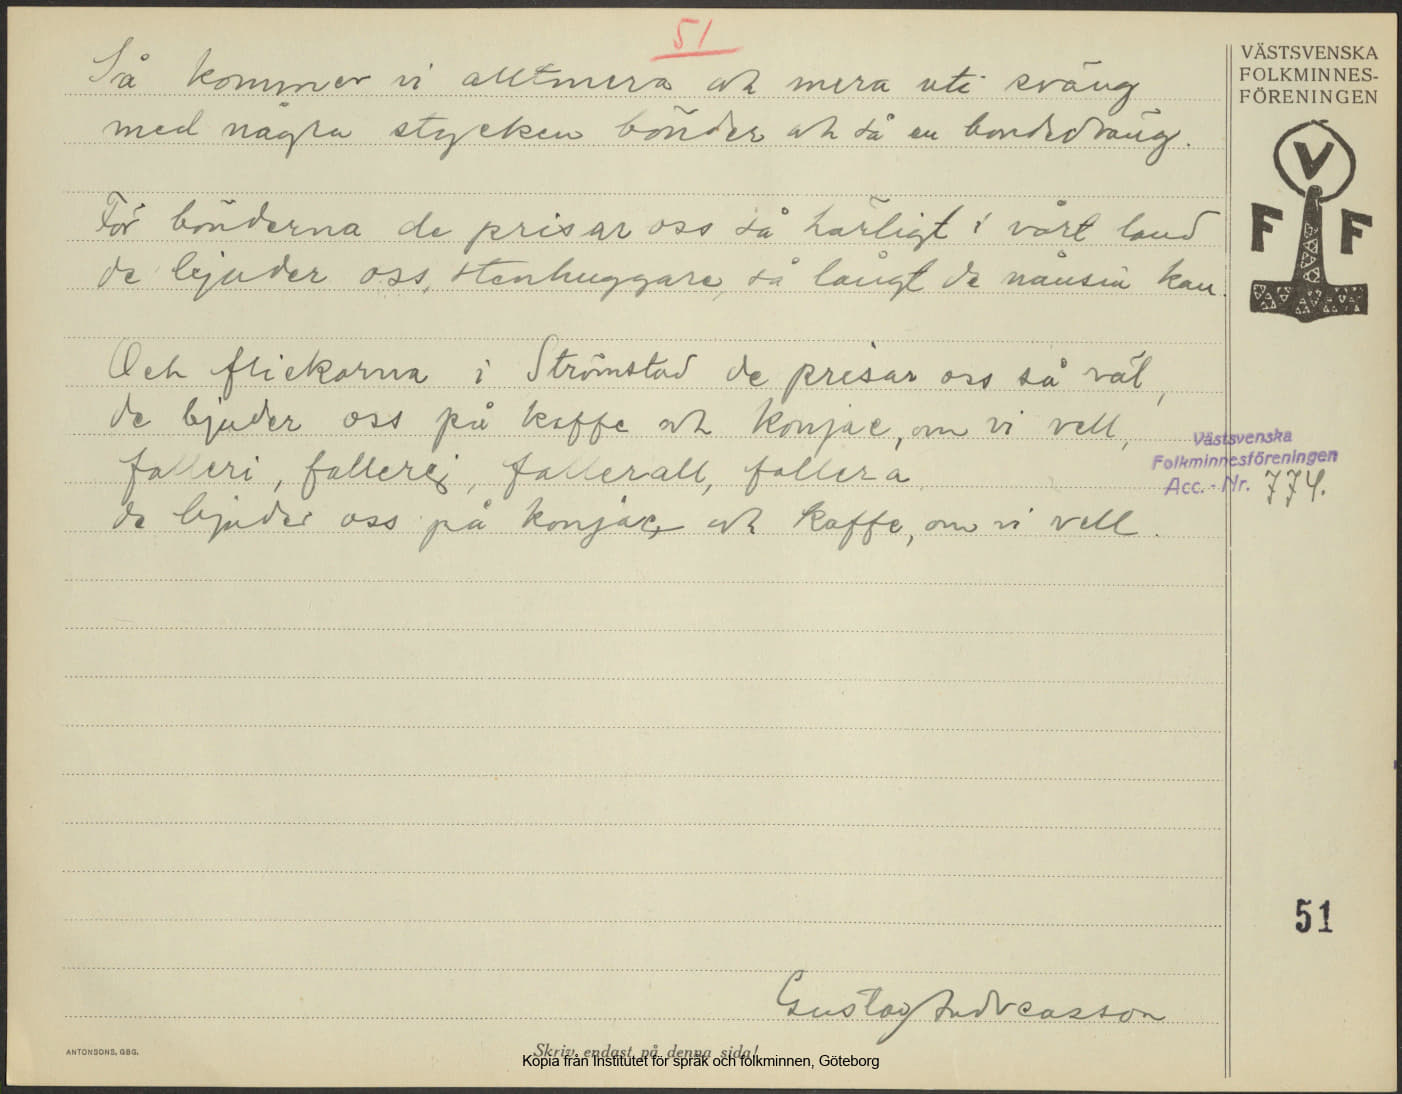 51
Så kommer vi alltmera och mera uti sväng
med några stycken bönder och så en bondedräng.
För bönderna de prisar oss så härligt i vårt land
de bjuder oss, stenhuggare, så långt de nånsin kan.
Och flickorna i Strömstad de prisar oss så väl,
de bjuder oss på kaffe och konjac, om vi vell,
falleri, fallerej, fallerall, fallera
de bjuder oss på konjac, och kaffe, om vi vell.
Gustav Andreasson
VÄSTSVENSKA
FOLKMINNES-
FÖRENINGEN
V
F F
Västsvenska
Folkminnesföreningen
Acc.-Nr. 774.
51
ANTONSONS, GBG.
Skriv endast på denna sida!
Kopia från Institutet för språk och folkminnen, Göteborg